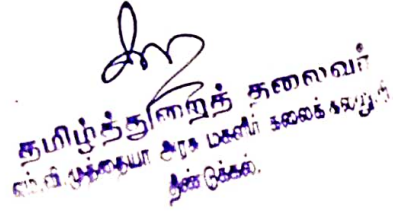 தமிழ்த்துறைத் தலைவர்
எம்.வி.முத்தையா அரசு மகளிர் கலைக் கல்லூரி
திண்டுக்கல்.